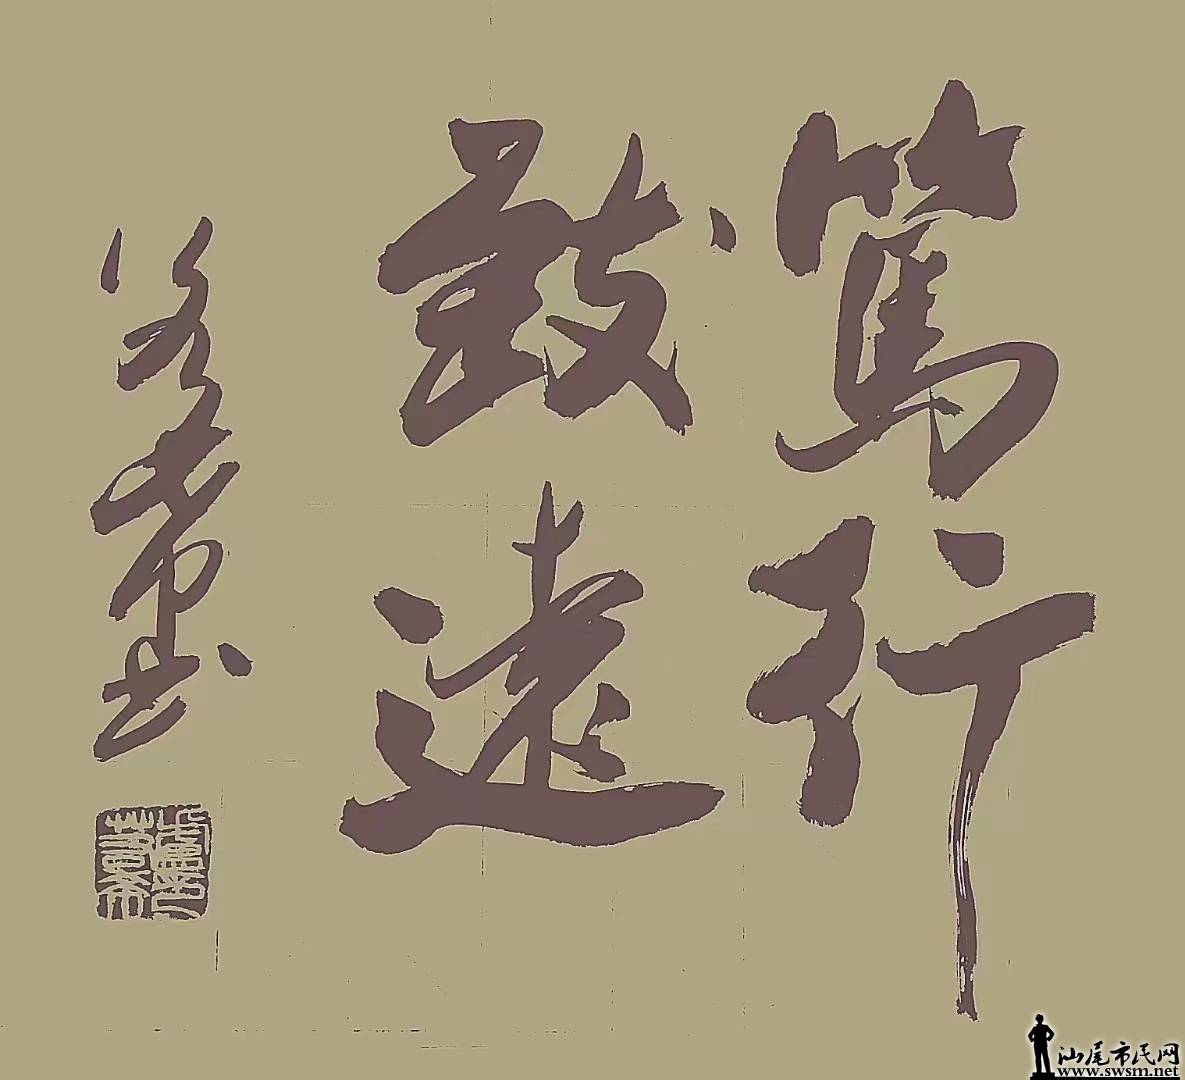 篤行
致遠
汕尾市民网
www.swsm.net